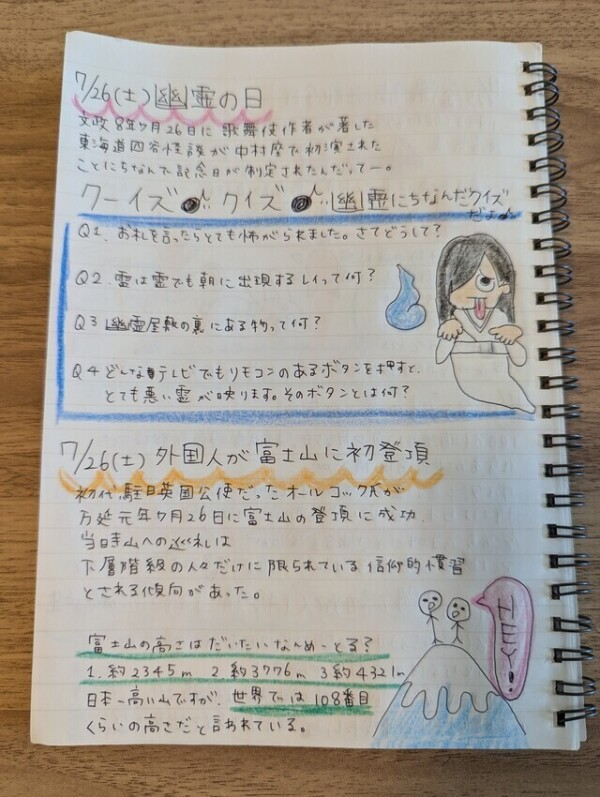 7/26(土)幽霊の日
文政8年7月26日に歌舞伎作者が著した
東海道四谷怪談が中村座で初演された
ことにちなんで記念日が制定されたんだってー。
クーイズ♪クイズ♪幽霊にちなんだクイズ
だよ♪
Q1. お礼を言ったらとても怖がられました。さてどうして?
Q2. 霊は霊でも朝に出現するレイって何?
Q3 幽霊屋敷の裏にある物って何?
Q4 どんなテレビでもリモコンのあるボタンを押すと、
とても悪い霊が映ります。そのボタンとは何?
7/26(土)外国人が富士山に初登頂
初代駐日英国公使だったオールコック氏が
万延元年7月26日に富士山の登頂に成功.
当時山への巡礼は
下層階級の人々だけに限られている信仰的慣習
とされる傾向があった。
HEY!
富士山の高さはだいたいなんめーとる?
1.約2345m 2.約3776m 3約4321m
日本一高い山ですが、世界では108番目
くらいの高さだと言われている。